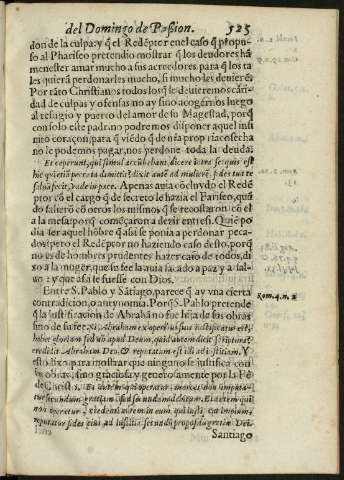 del Domingo de Paßion. 525
don de la culpa: y q̃ el Redẽptor en el caso q̃ propu-
so al Phariseo pretendio mostrar q̃ los deudores hã
menester amar mucho a sus acreedores, para q̃ los ta
les quierã perdonarles mucho, si mucho les deuierẽ
Por tãto Christianos todos los q̃ le deuieremos cari-
dad de culpas y ofensas no ay sino acogernos luego
al refugio y puerto del amor de su Magestad, porq̃
con solo este padrino podremos disponer aquel insi
nito coraçon, para q̃ viẽdo q̃ de nr̃a propria cosecha
no le podemos pagar, nos perdone toda la deuda.
Et ceperunt, qui simul accũbebant, dicere intra se quis est
hic qui etiã peccata dimittit? dixit autẽ ad mulierẽ, fides tua te
saluã fecit, vade in pace. Apenas auia cõcluydo el Redẽ
ptor cõ el cargo q̃ de secreto le hazia el Fariseo, quã
do salierõ cõ otros los mismos q̃ se recostaron cõ el
a la mesa: porq̃ começaron a dezir entresi. Quiẽ po
dia ser aquel hõbre q̃ assi se ponia a perdonar peca-
dos? pero el Redẽptor no haziendo caso desto, porq̃
no es de hombres prudentes hazer caso de todos, di
xo a la muger, que su fee la auia sacado a paz y a sal-
uo: y que assi se fuesse con Dios.
Entre S. Pablo y Sãtiago, parece q̃ ay vna cierta
contradicion, o antynomia. Porq̃ S. Pablo pretende Rom. 4. n. 2
q̃ la justificacion de Abrahan no fue hija de sus obras
sino de su fee. Si Abraham ex operibus suis iustificatus est,
habet gloriam sed nõ apud Deum, quid autem dicit scriptura?
credidit Abrahã Deo, & reputatum est illi ad iustitiam. Y
esto dixo para mostrar que ninguno se justifica con
sus obras, sino graciosa y generosamente por la Fè
de Christo. Ei autem qui operatur, merces non imputa-
tur secundum gratiam sed secundum debitum. Ei autem qui
non operatur, credenti autem in eum, qui iustificat impium,
reputatur fides eius ad iustitiã secundũ propositũ gratiæ Dei.
Santiago